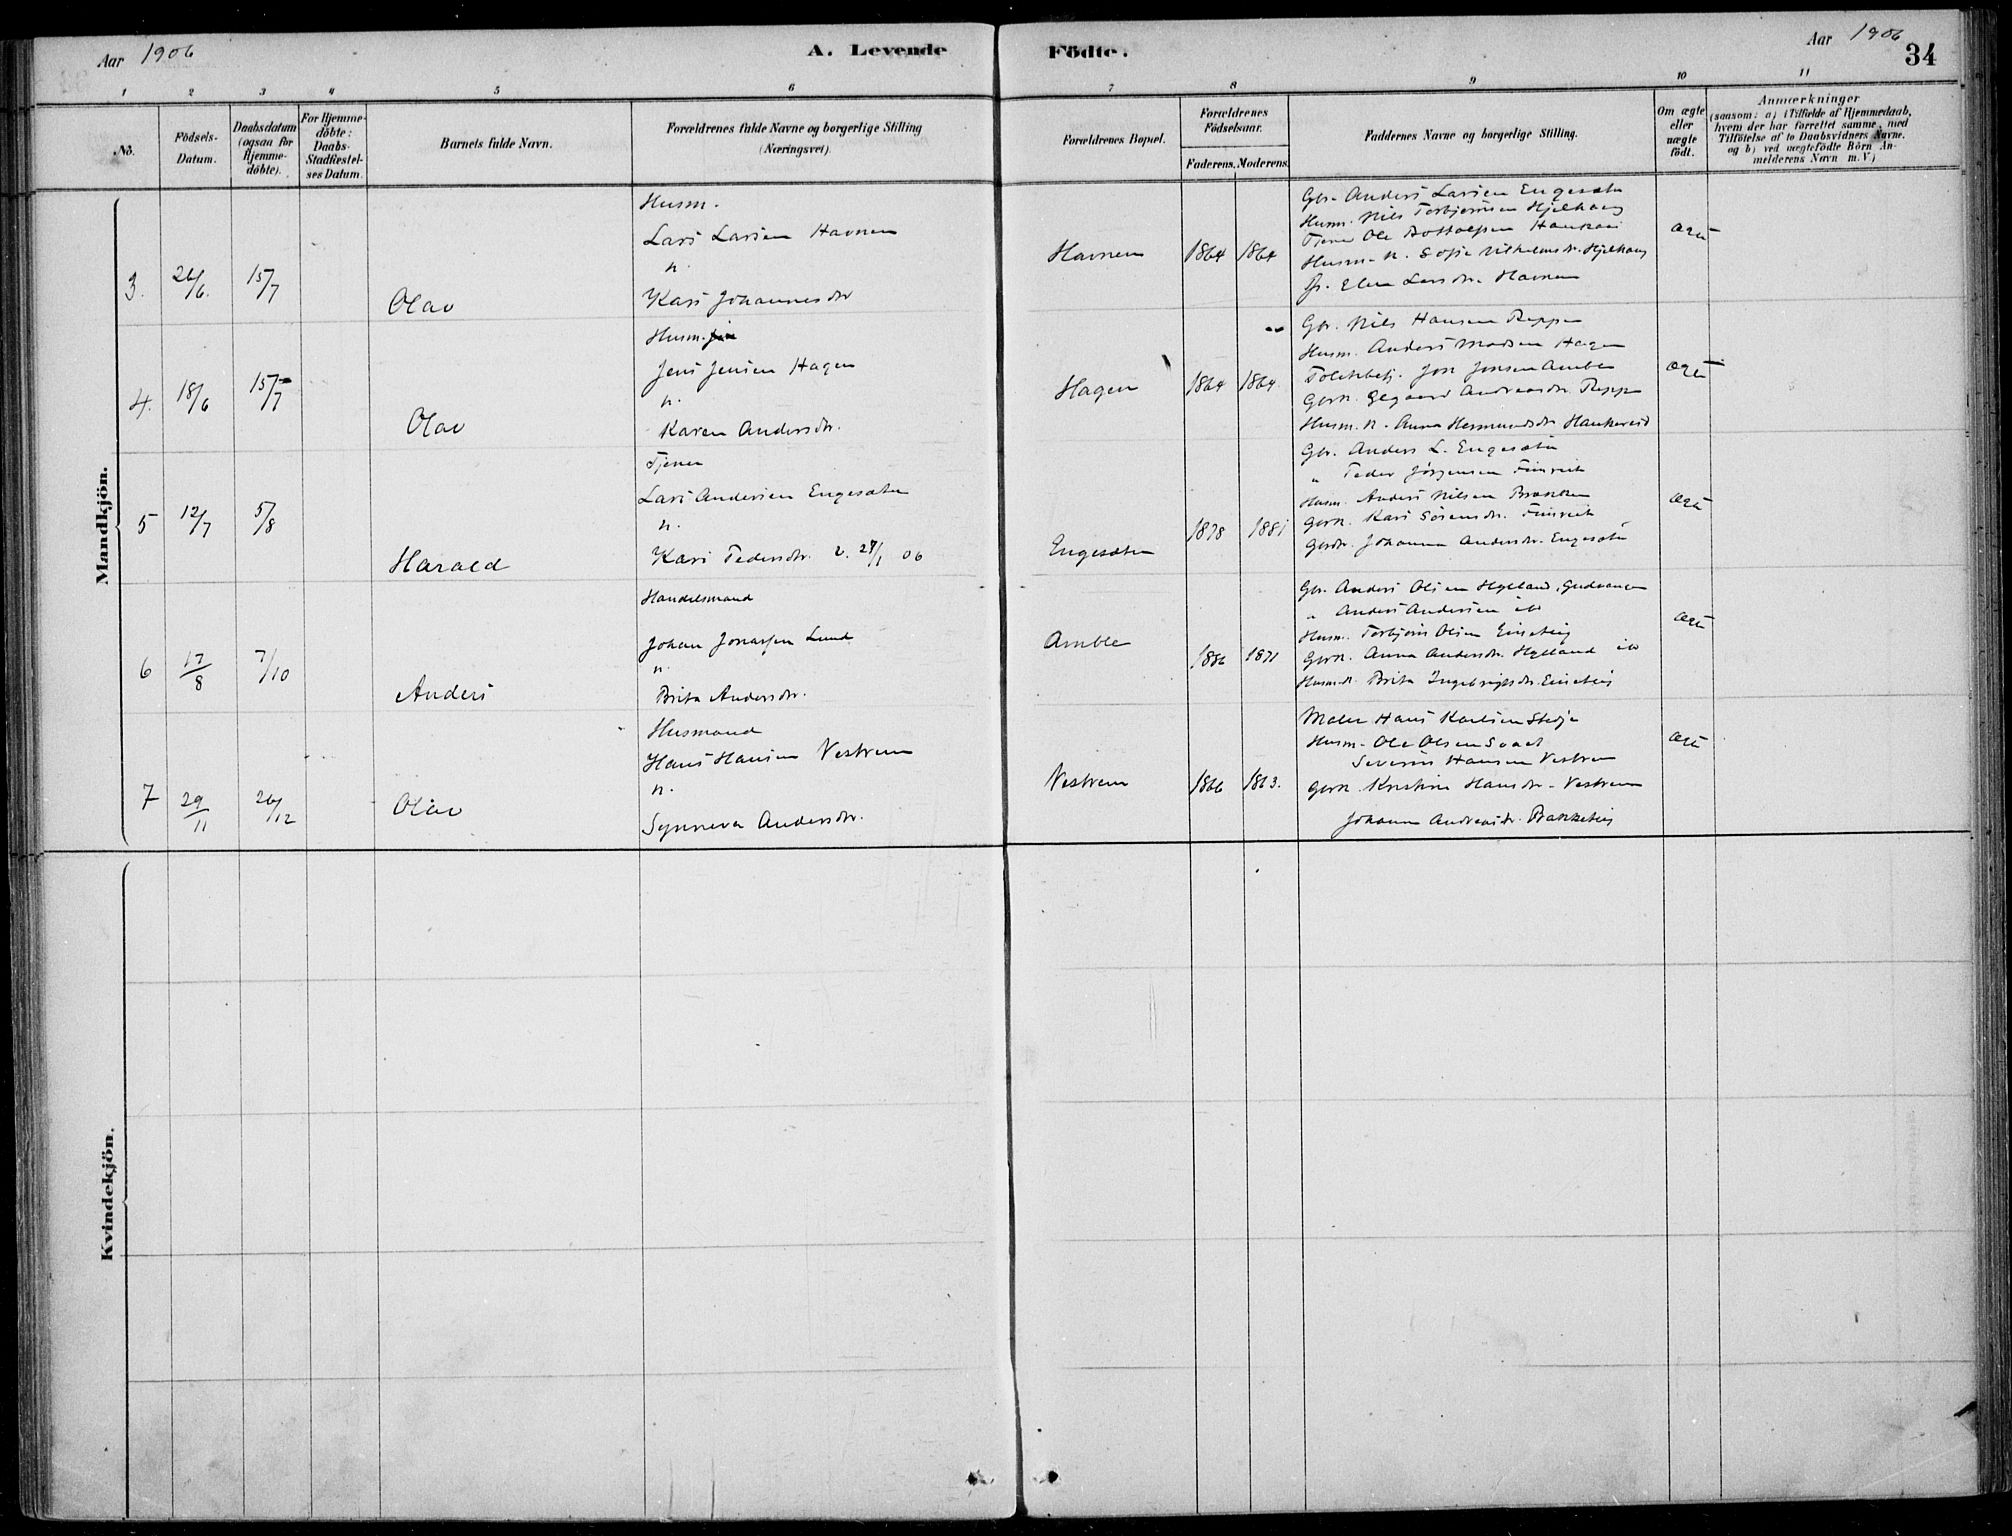 Aar 1906
A. Levende Födte.
Aar 1906
34
1 2 3 4 5 6 7 8 9 10 11
No.
Födsels-
Datum.
Daabsdatum
(ogsaa for
Hjemme-
döbte).
For Hjemme-
döbte:
Daabs-
Stadfæstel-
ses Datum.
Barnets fulde Navn.
Forældrenes fulde Navne og borgerlige Stilling
(Næringsvei).
Forældrenes Bopæl.
Forældrenes
Födselsaar.
Faderens. Moderens.
Faddernes Navne og borgerlige Stilling.
Om ægte
eller
uægte
födt.
Anmærkninger
(saasom: a) i Tilfælde af Hjemmedaab,
hvem der har forrettet samme, med
Tilföielse af to Daabsvidners Navne,
og b) ved uægtefödte Börn An-
melderens Navn m. V.)
Mandkjön.
3. 26/6. 15/7
Olav
Husm.
Lars Larsen Havnen
h.
Kari Johannesdr
Havnen
1864 1864
Gbr. Anders Larsen Engesæter
Husm. Nils Torbjörnsen Hjelhaug
Tjener Ole Bottolfsen
Husm. k. Sofie Vilhelmsdr. Hjelhaug
P. Elen Larsdr. Havnen
ægte
4. 18/6 15/7
Olav
Husm.
Jens Jensen Hagen
h.
Karen Andersdr.
Hagen
1864 1864
Gbr. Nils Hansen Reppen
Husm. Anders Madsen Hagen
Jon Jonsen Amble
Gbrk. Andreasdr. Reppen
Husm. k. Anna Hermundsdr
ægte
5 12/7 5/8
Harald
Tjener
Lars Andersen Engesæter
h.
Kari Pedersdr. v. 27/1 06
Engesæter
1878 1881
Gbr. Anders L. Engesæter
" Peder Jörgensen Fimreite
Husm. Anders Nilsen Brækken
Gbrk. Kari Sörensdr. Fimreite
Gbrdr. Johanna Andersdr. Engesæter
ægte
6 17/8 7/10
Anders
Handelsmand
Johan Jonassen Lund
h.
Brita Andersdr.
Amble
1886 1871
Gbr. Anders Olsen Hylland, Gudvangen
" Anders Andersen ib
Husm. Torbjörn Olsen
Gbrk. Anna Andersdr. Hylland ib
Husm. k. Brita Ingebrigtsdr.
ægte
7 29/11 26/12
Olav
Husmand
Hans Hansen Vestrem
h.
Synneva Andersdr.
Vestrem
1866 1863.
Maler Hans Karlsen Stedje
Husm. Ole Olsen
Severin Hansen Vestrem
Gbrk. Kristine Hansdr. Vestrem
Johanna Andreasdr.
ægte
Kvindekjön.